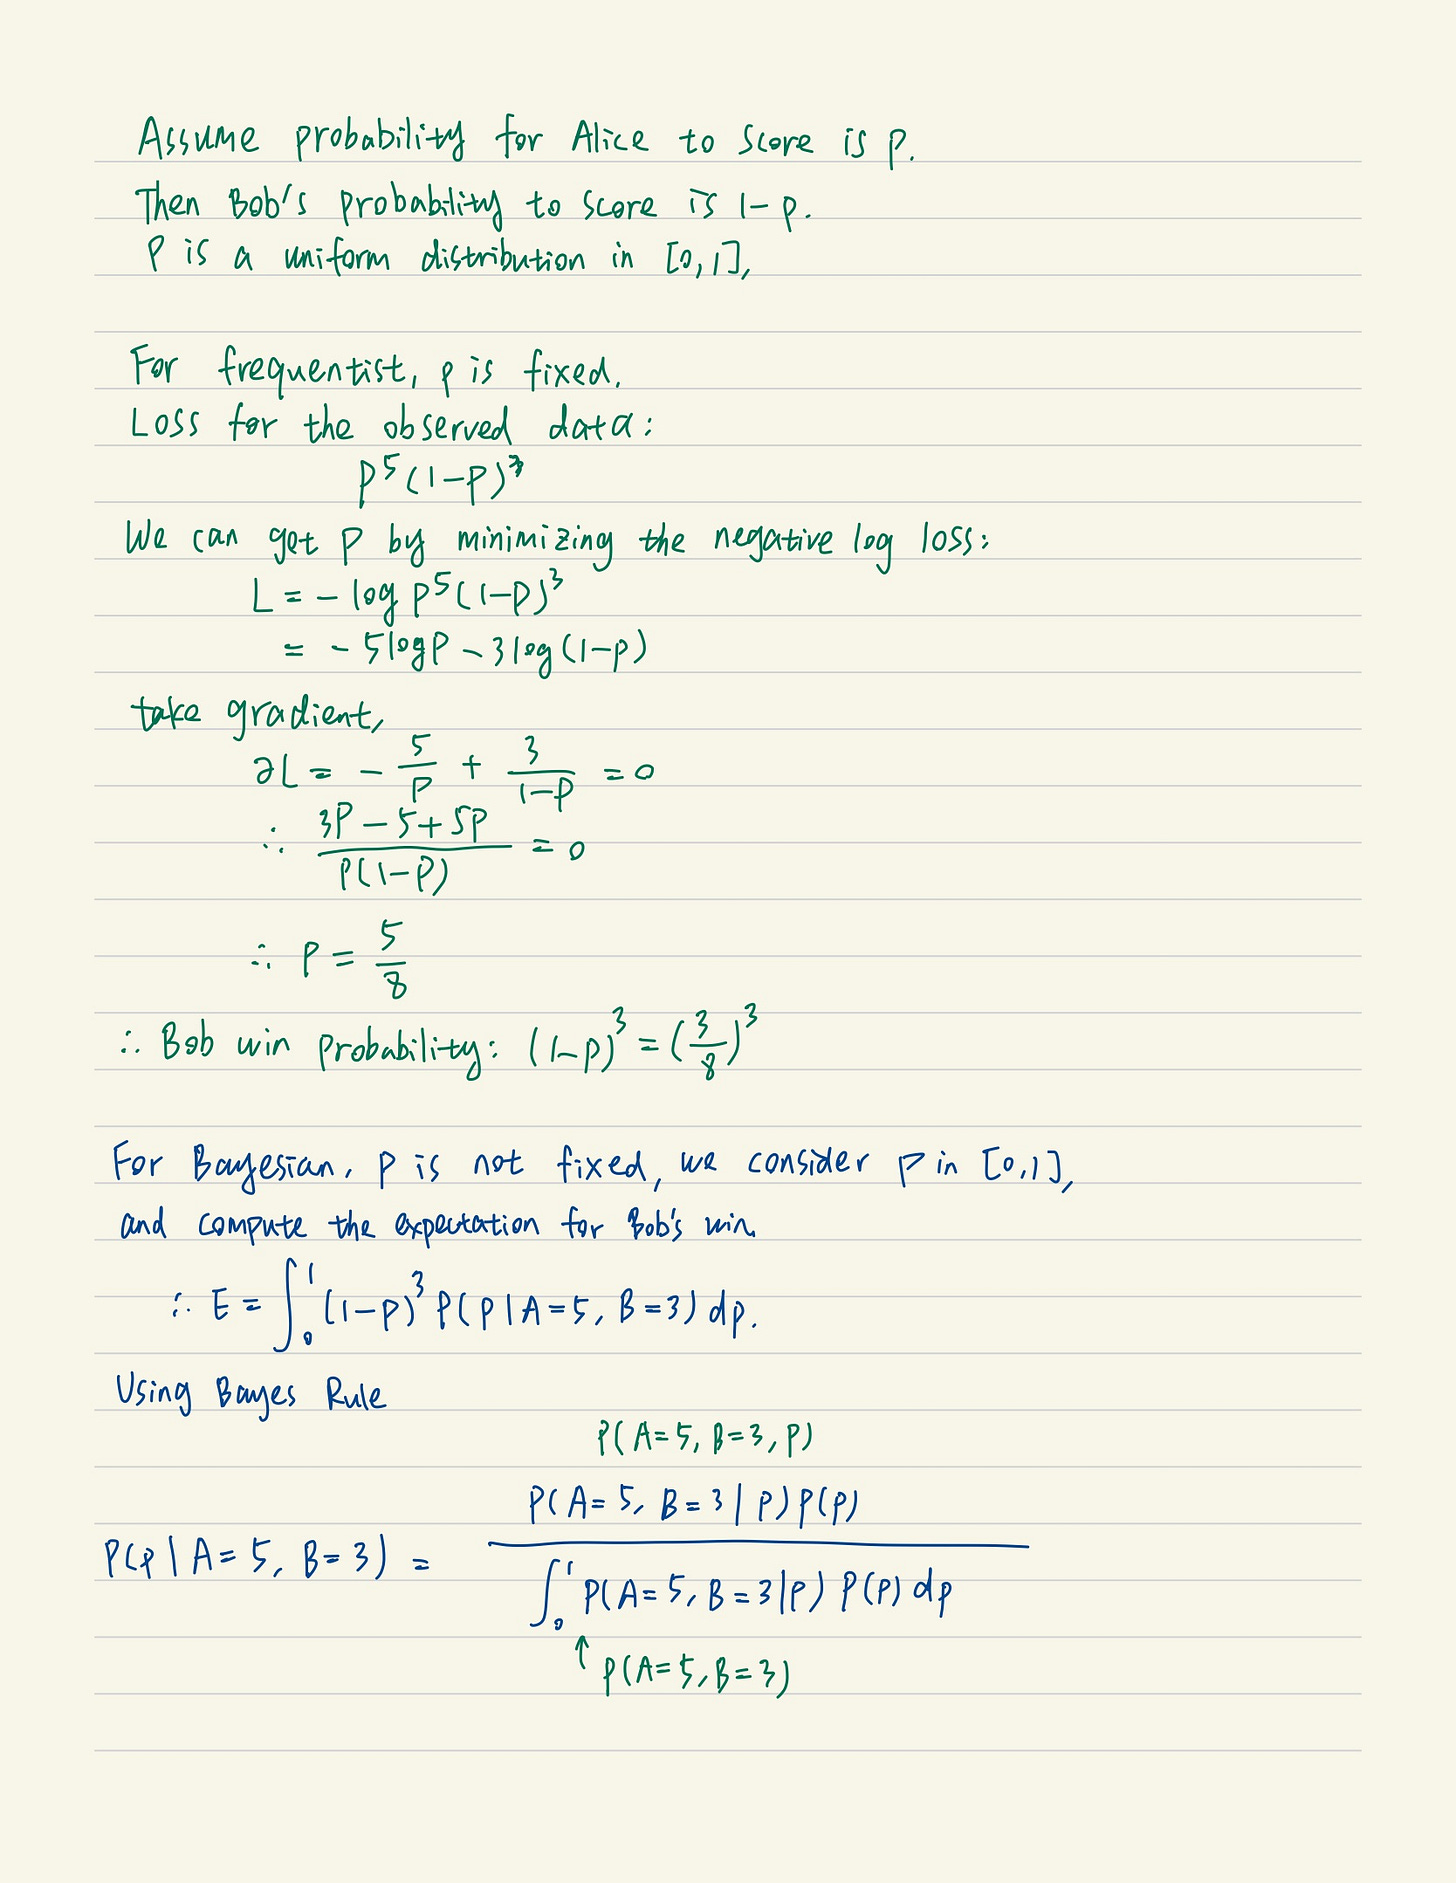 Assume probability for Alice to score is p.
Then Bob's probability to score is 1-p.
P is a uniform distribution in [0,1],
For frequentist, p is fixed.
Loss for the observed data:
p⁵(1-p)³
We can get p by minimizing the negative log loss:
L = - log p⁵(1-p)³
= - 5logp - 3log(1-p)
take gradient,
∂L = - 5/p + 3/(1-p) = 0
∴ (3p - 5 + 5p)/(p(1-p)) = 0
∴ p = 5/8
∴ Bob win probability: (1-p)³ = (3/8)³
For Bayesian, p is not fixed, we consider p in [0,1],
and compute the expectation for Bob's win.
∴ E = ∫₀¹ (1-p)³ P(p|A=5, B=3) dp.
Using Bayes Rule
P(A=5, B=3, p)
P(p|A=5, B=3) = P(A=5, B=3|p)P(p) / ∫₀¹ P(A=5, B=3|p) P(p) dp
↑ P(A=5, B=3)